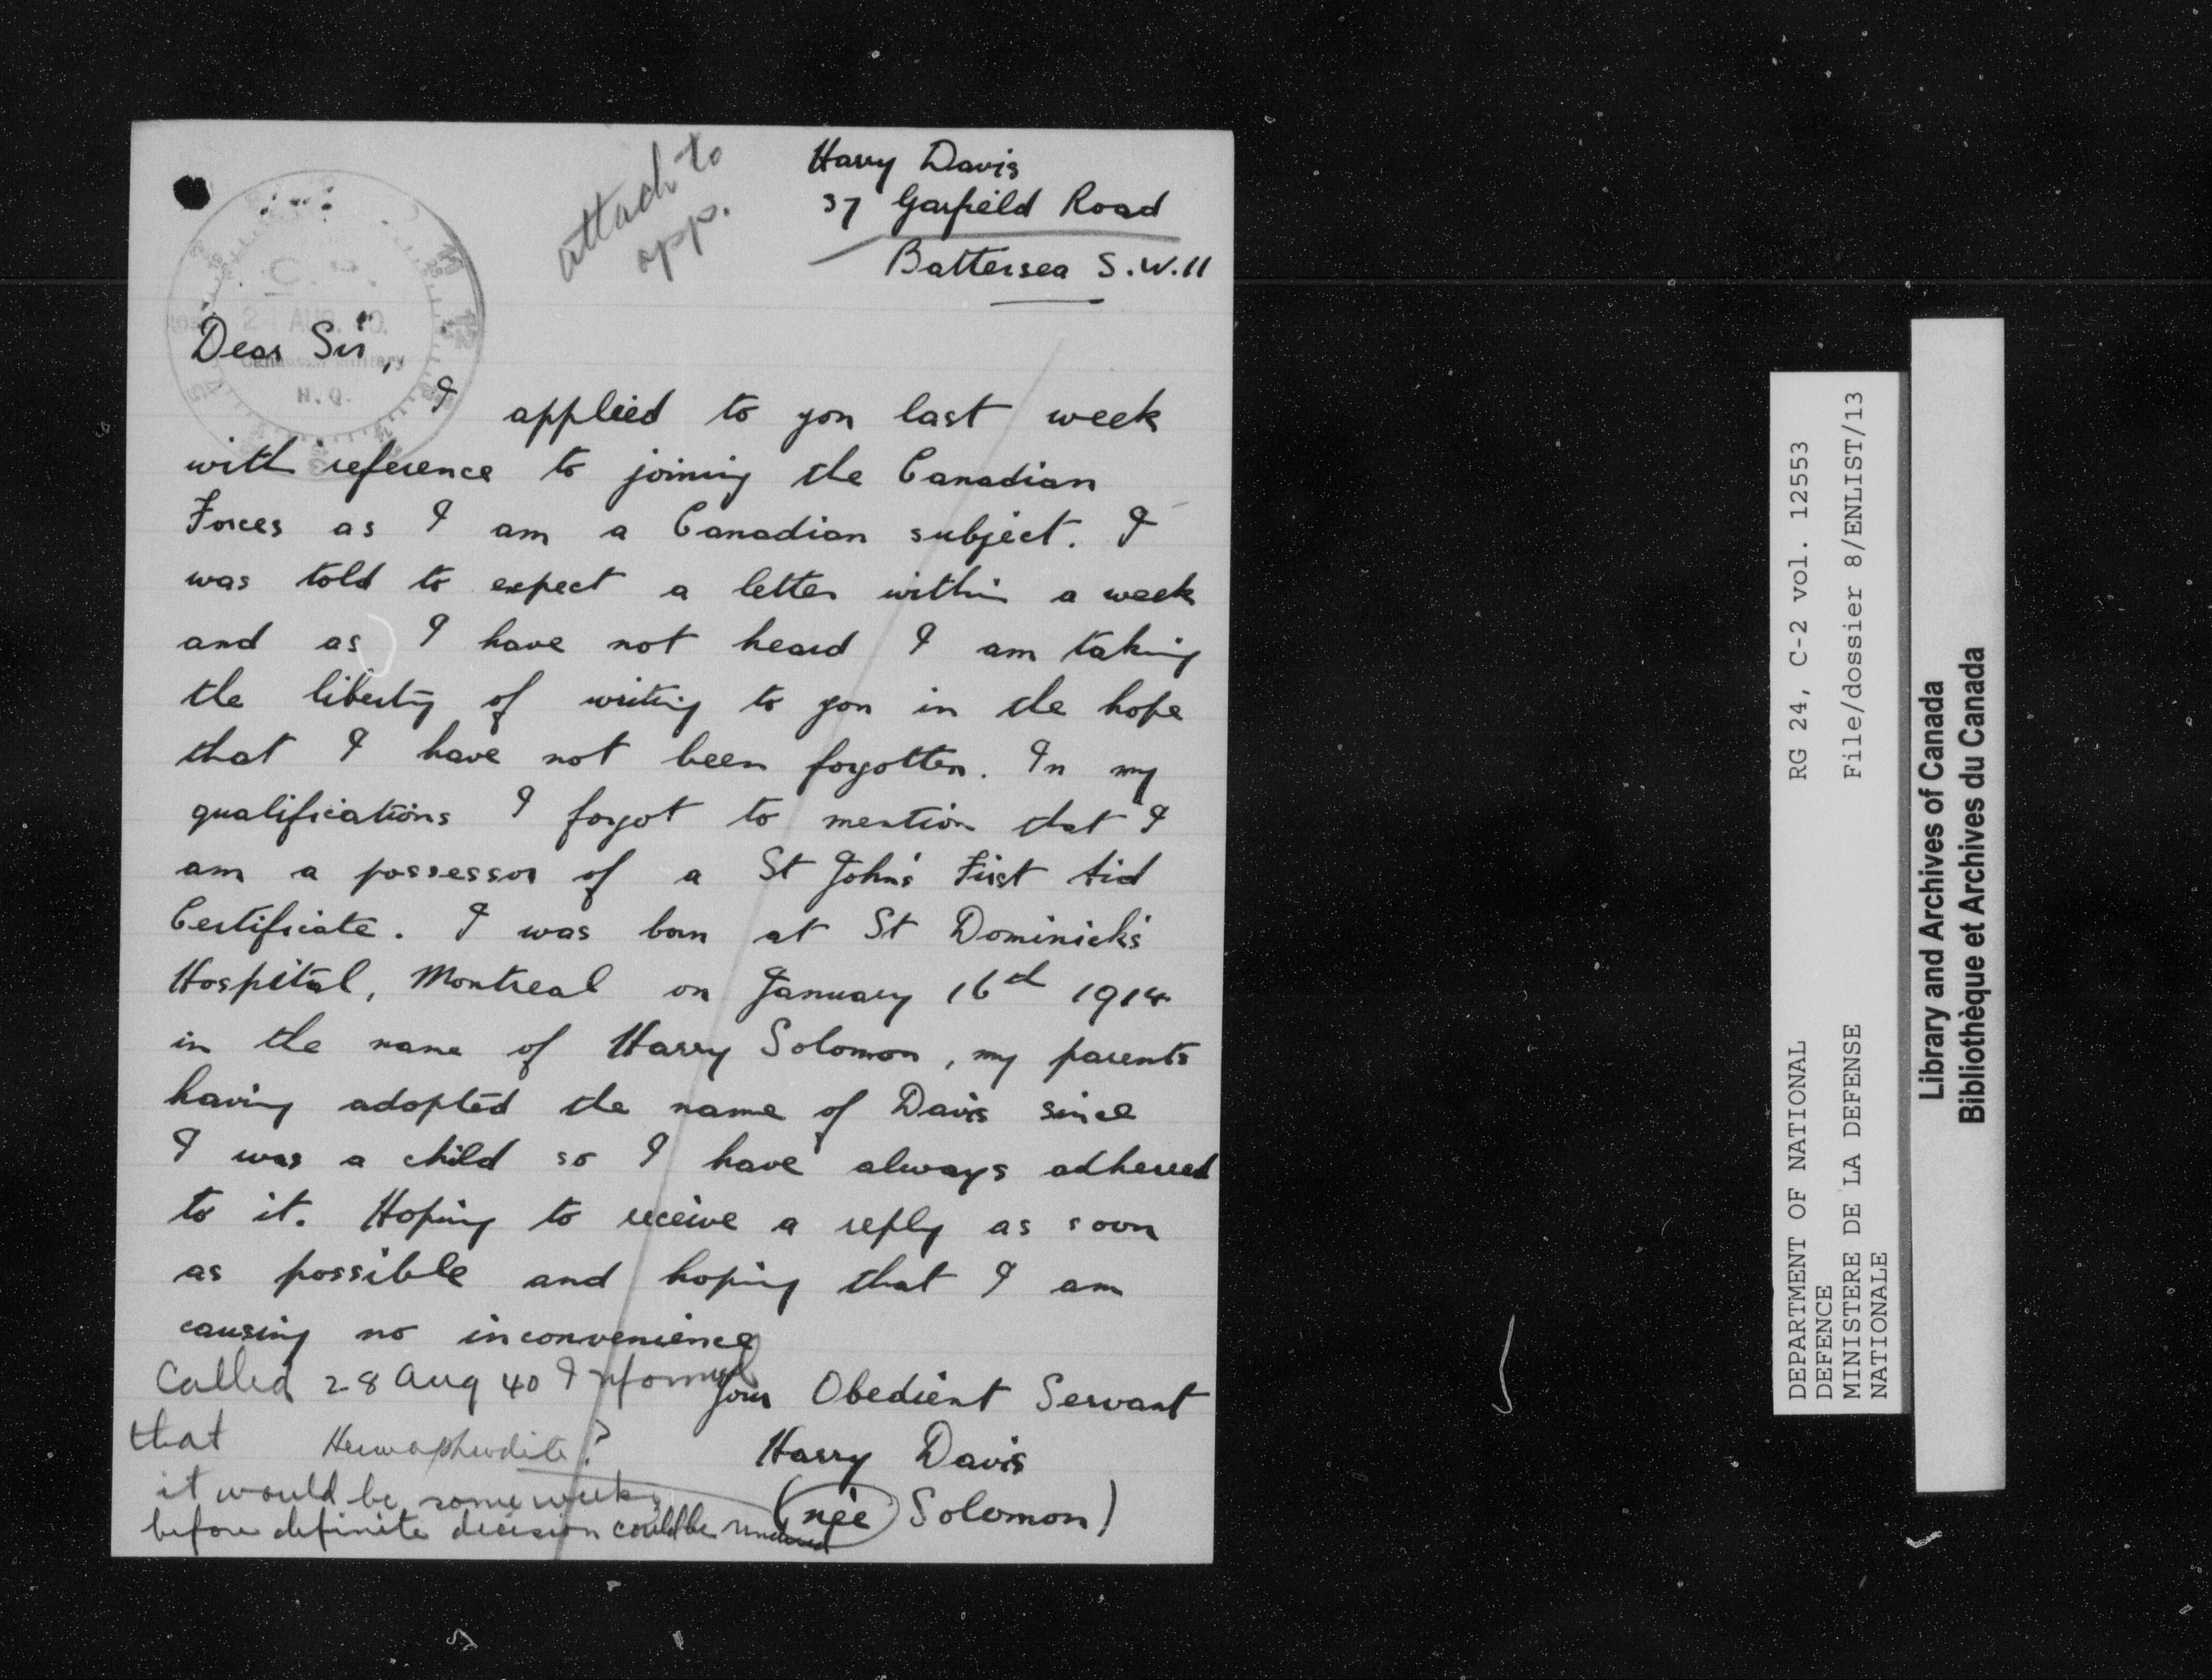 attach to
app.
Harry Davis
37 Garfield Road
Battersea S.W.11
C. P.
2 AUG. 40.
Canadian Military
H. Q.
Dear Sir,
I applied to you last week
with reference to joining the Canadian
Forces as I am a Canadian subject. I
was told to expect a letter within a week
and as I have not heard I am taking
the liberty of writing to you in the hope
that I have not been forgotten. In my
qualifications I forgot to mention that I
am a possessor of a St John's First Aid
Certificate. I was born at St Dominick's
Hospital, Montreal on January 16th 1914
in the name of Harry Solomon, my parents
having adopted the name of Davis since
I was a child so I have always adhered
to it. Hoping to receive a reply as soon
as possible and hoping that I am
causing no inconvenience
Your Obedient Servant
Harry Davis
(née Solomon)
Called 28 Aug 40 & informed
that
Hermaphrodite?
it would be some weeks
before definite decision could be rendered
DEPARTMENT OF NATIONAL
DEFENCE
MINISTERE DE LA DEFENSE
NATIONALE
RG 24, C-2 vol. 12553
File/dossier 8/ENLIST/13
Library and Archives of Canada
Bibliothèque et Archives du Canada